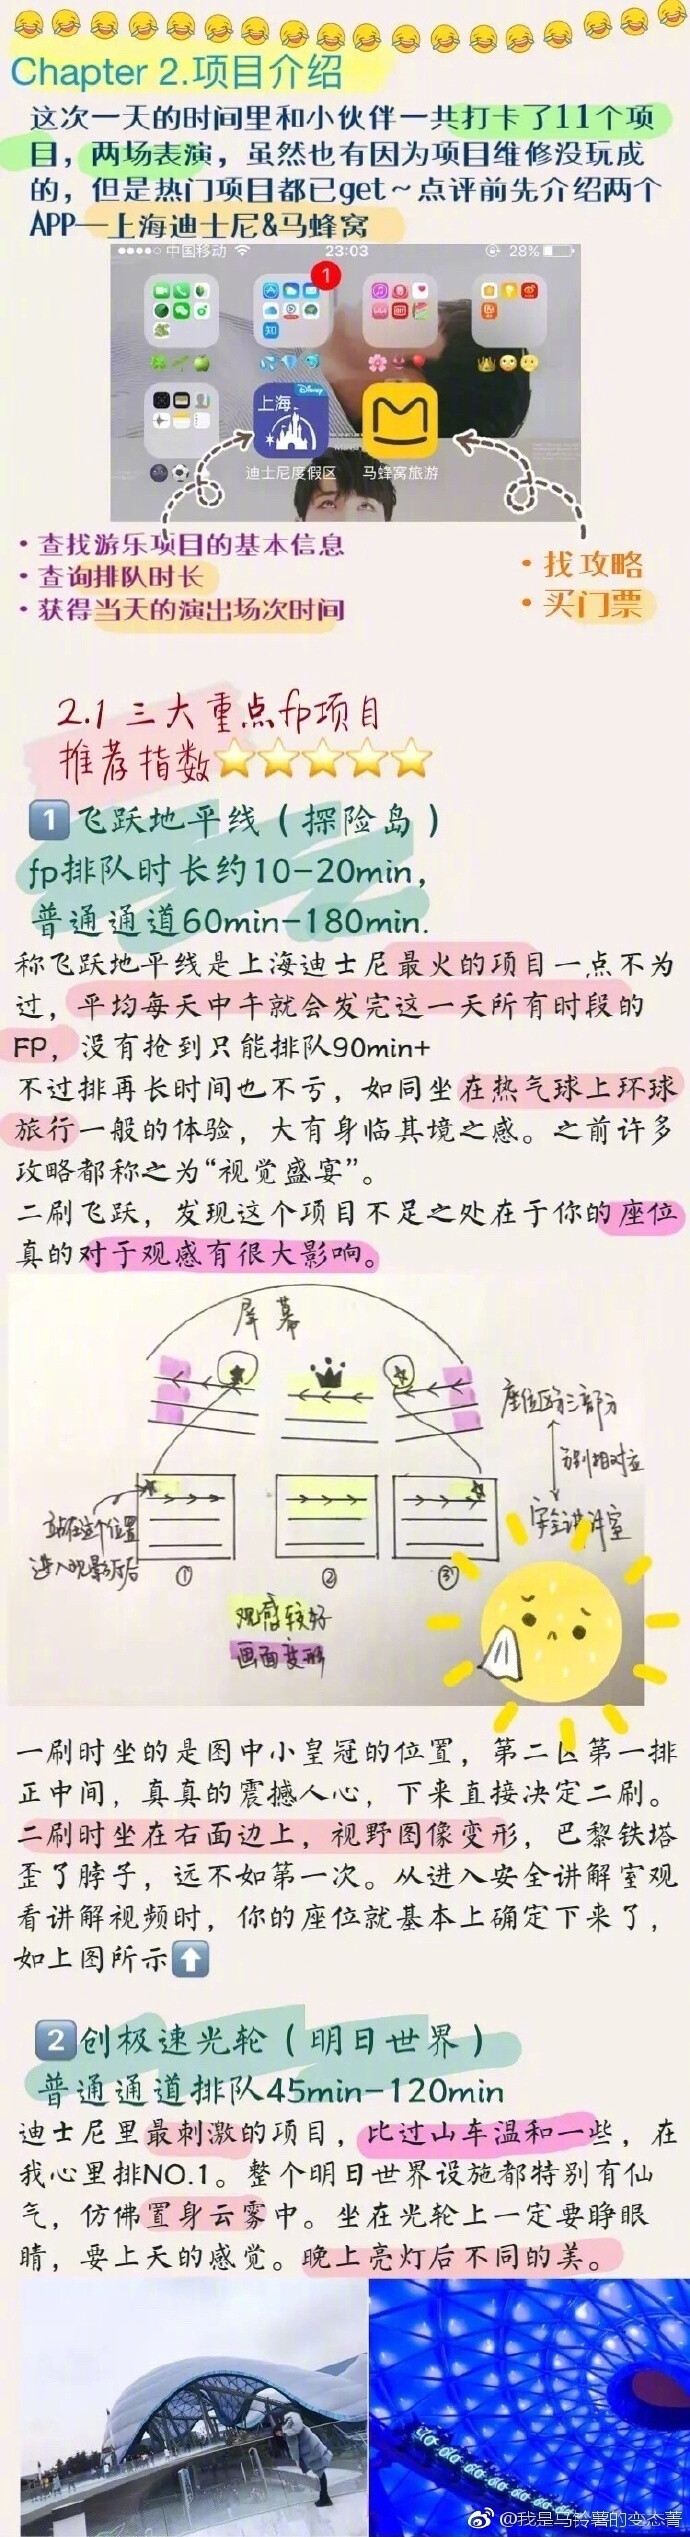 Chapter 2.项目介绍
这次一天的时间里和小伙伴一共打卡了11个项
目，两场表演，虽然也有因为项目维修没玩成
的，但是热门项目都已get～点评前先介绍两个
APP—上海迪士尼&马蜂窝
中国移动 23:03 28%
1
知
上海 Disney
迪士尼度假区 马蜂窝旅游
·查找游乐项目的基本信息
·查询排队时长
·获得当天的演出场次时间
·找攻略
·买门票
2.1 三大重点fp项目
推荐指数⭐⭐⭐⭐⭐
1 飞跃地平线（探险岛）
fp排队时长约10-20min，
普通通道60min-180min.
称飞跃地平线是上海迪士尼最火的项目一点不为
过，平均每天中午就会发完这一天所有时段的
FP，没有抢到只能排队90min+
不过排再长时间也不亏，如同坐在热气球上环球
旅行一般的体验，大有身临其境之感。之前许多
攻略都称之为“视觉盛宴”。
二刷飞跃，发现这个项目不足之处在于你的座位
真的对于观感有很大影响。
屏幕
座位区分三部分
分别相对应
安全讲解室
站在这个位置
进入观影厅后
① ② ③
观感较好
画面变形
一刷时坐的是图中小皇冠的位置，第二区第一排
正中间，真真的震撼人心，下来直接决定二刷。
二刷时坐在右面边上，视野图像变形，巴黎铁塔
歪了脖子，远不如第一次。从进入安全讲解室观
看讲解视频时，你的座位就基本上确定下来了，
如上图所示⬆
2 创极速光轮（明日世界）
普通通道排队45min-120min
迪士尼里最刺激的项目，比过山车温和一些，在
我心里排NO.1。整个明日世界设施都特别有仙
气，仿佛置身云雾中。坐在光轮上一定要睁眼
睛，要上天的感觉。晚上亮灯后不同的美。
@我是马铃薯的变态菁